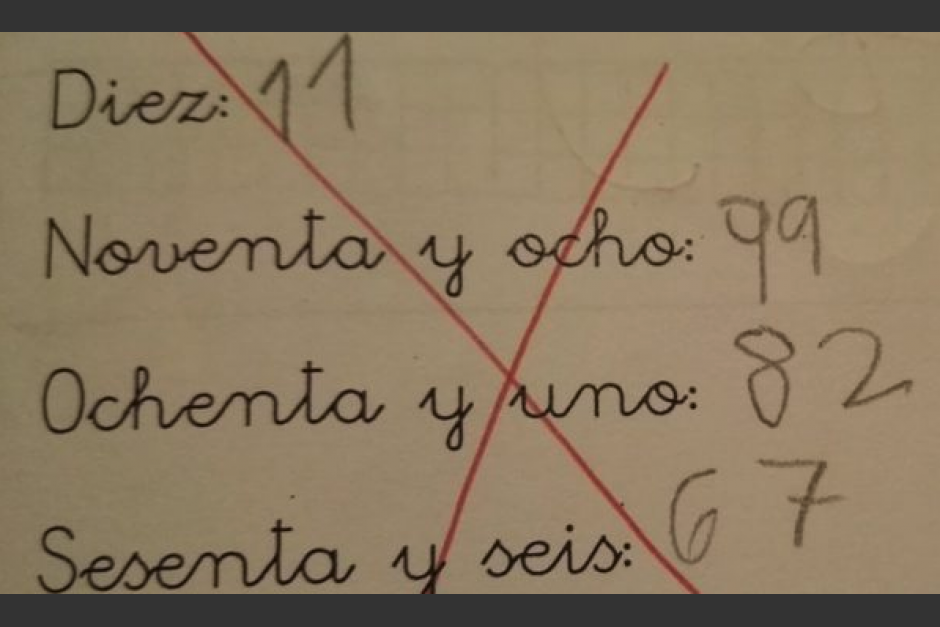 Diez: 11
Noventa y ocho: 99
Ochenta y uno: 82
Sesenta y seis: 67